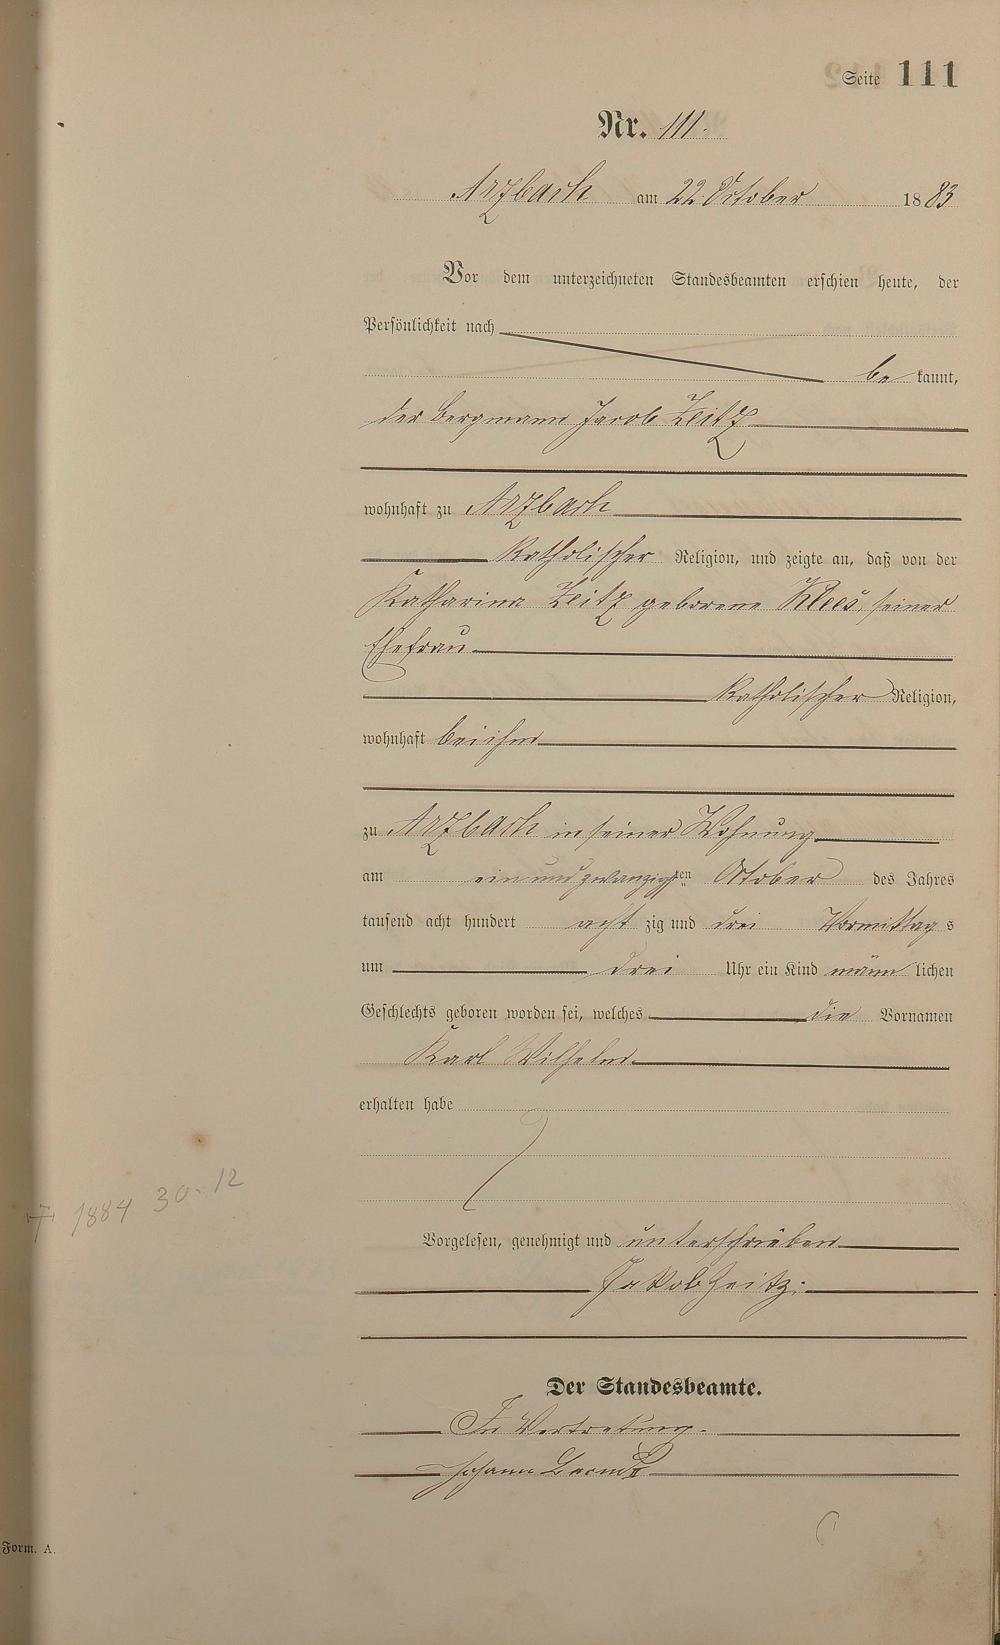 Seite 111
Nr. 111.
Arzbach am 22 October 1883
Vor dem unterzeichneten Standesbeamten erschien heute, der
Persönlichkeit nach
be kannt,
der Bergmann Jacob Zeitz
wohnhaft zu Arzbach
katholischer Religion, und zeigte an, daß von der
Katharina Zeitz geborene Klees, seiner
Ehefrau
katholischer Religion,
wohnhaft bei ihm
zu Arzbach in seiner Wohnung
am ein und zwanzigsten October des Jahres
tausend acht hundert acht zig und drei Vormittag s
um drei Uhr ein Kind männ lichen
Geschlechts geboren worden sei, welches die Vornamen
Karl Wilhelm
erhalten habe
† 1884 30.12
Vorgelesen, genehmigt und unterschrieben
Jakob Zeitz.
Der Standesbeamte.
In Vertretung.
Johann
Form. A.